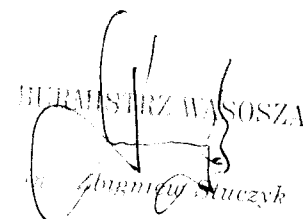 BURMISTRZ WĄSOSZA
Zbigniew Stuczyk